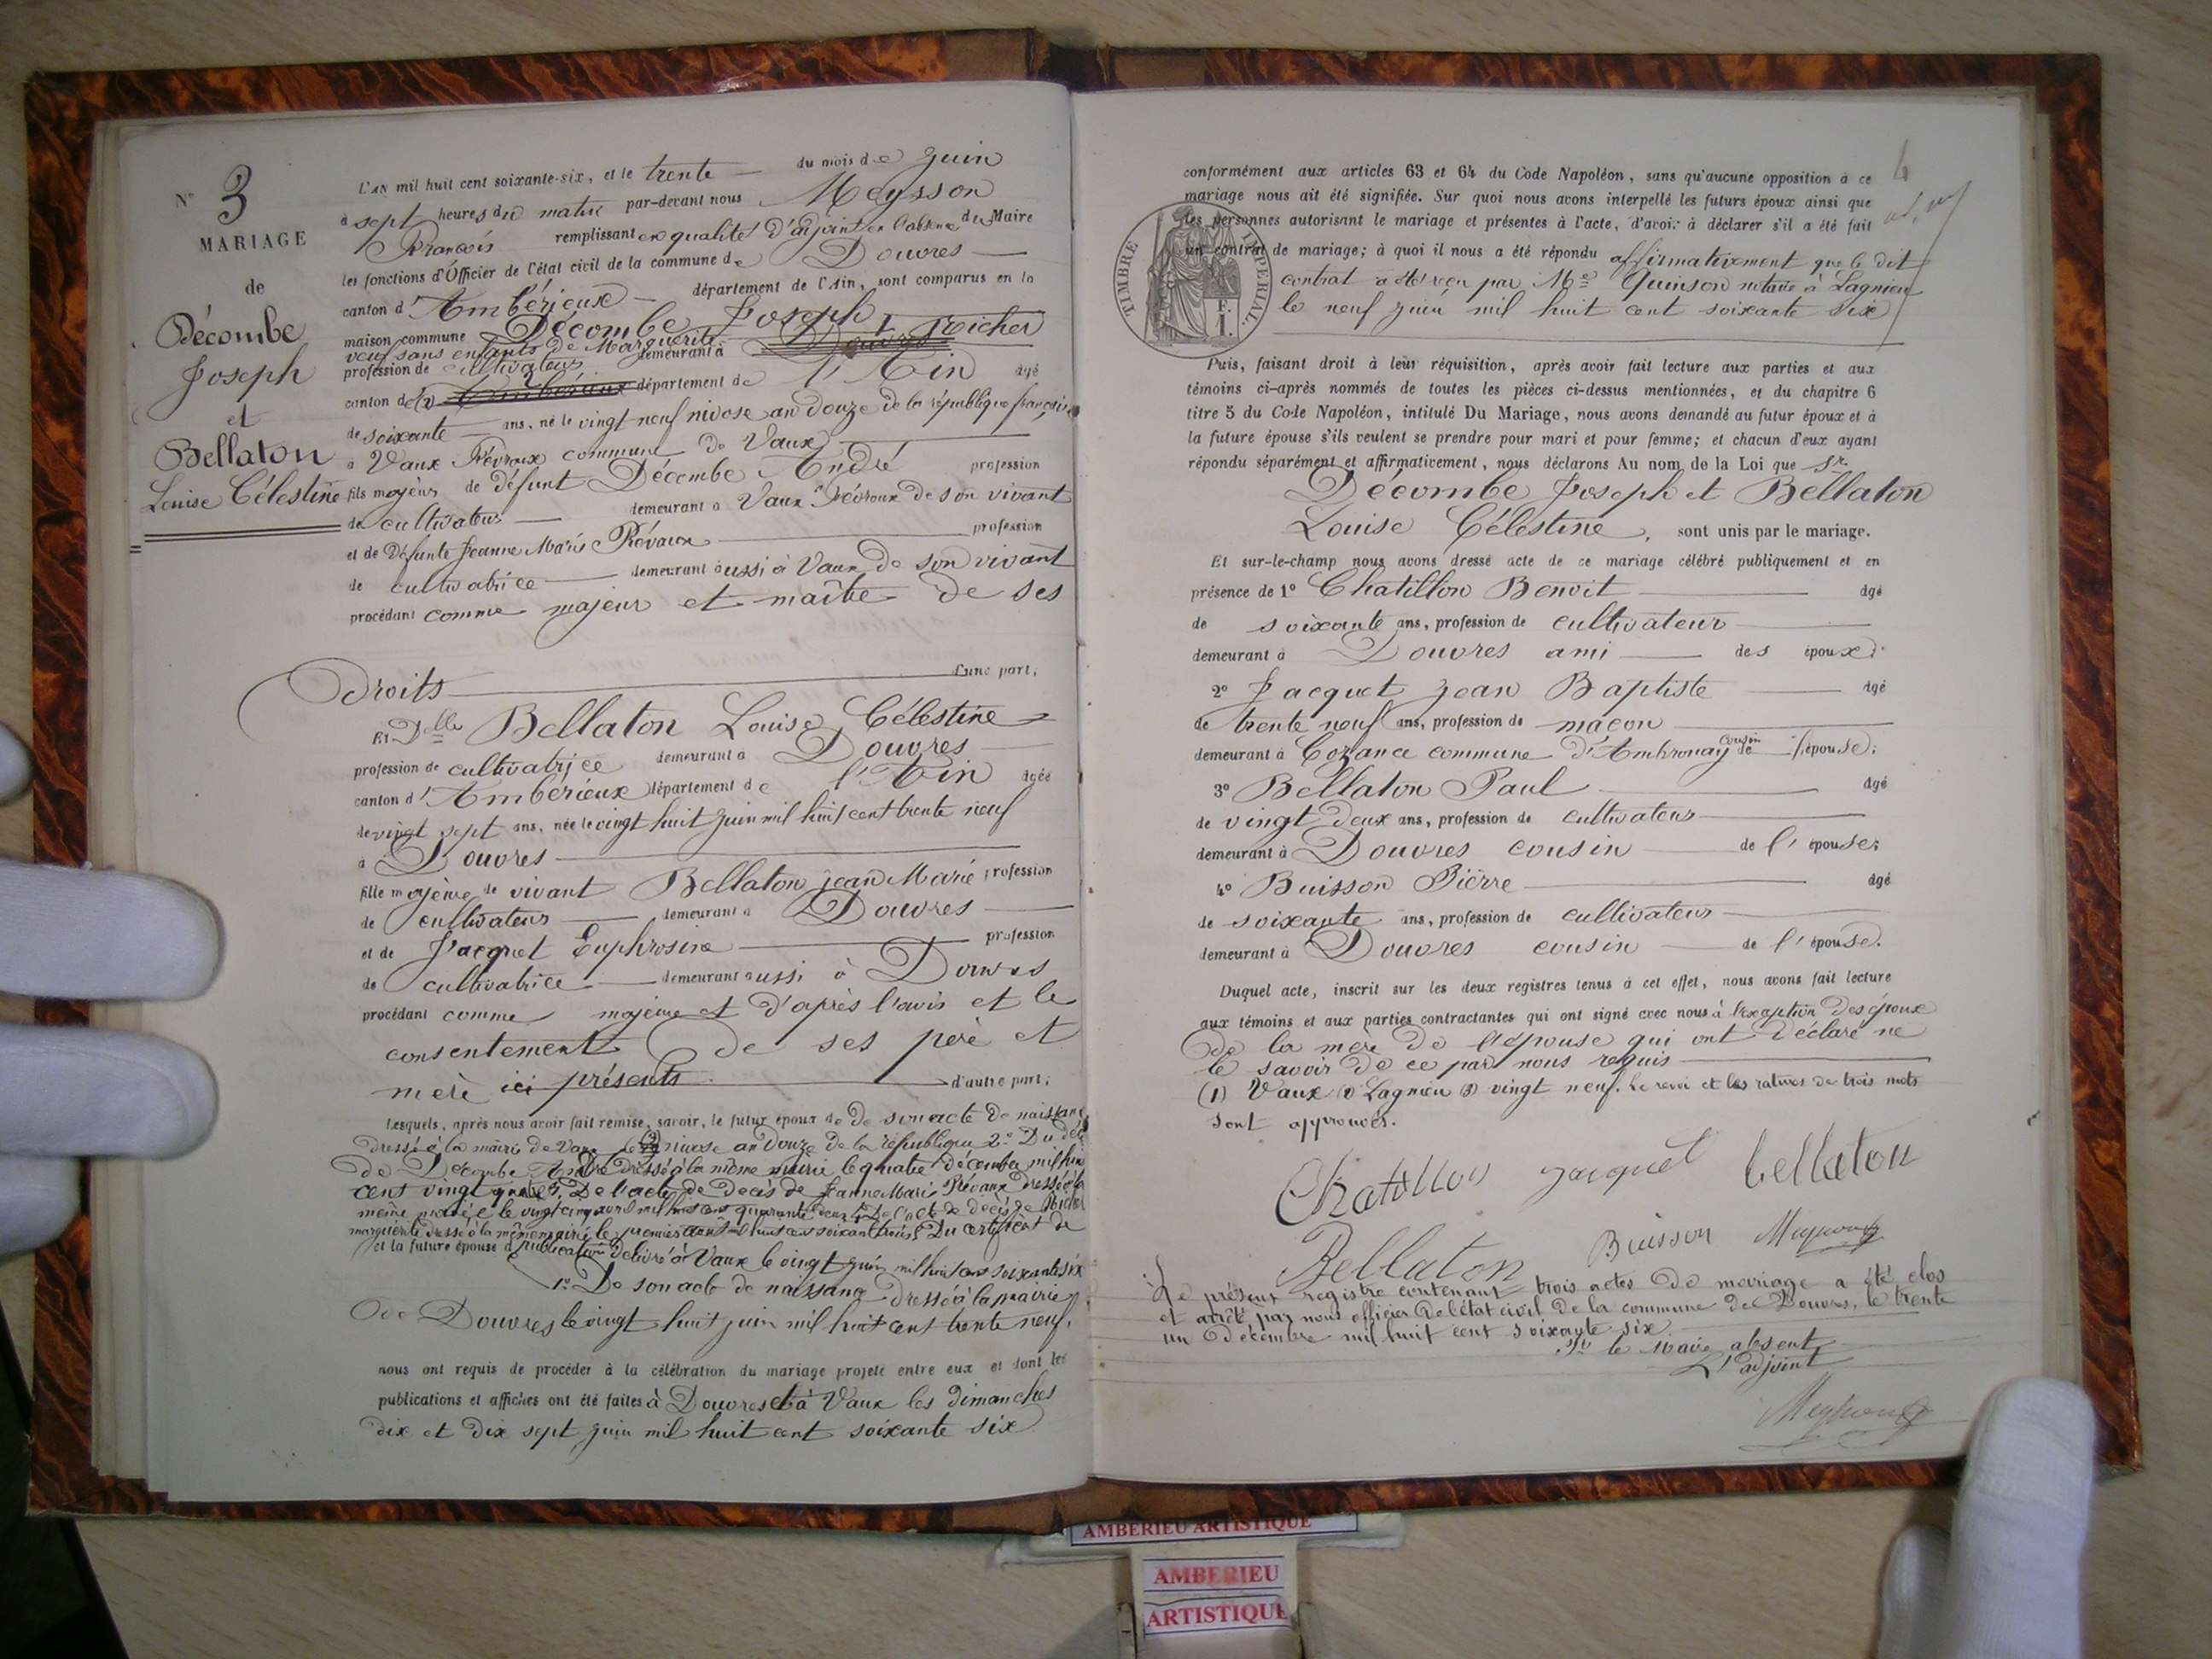 N° 3
MARIAGE
de
Décombe
Joseph
et
Bellaton
Louise Célestine
L'AN mil huit cent soixante-six, et le trente du mois de juin
à sept heures du matin par-devant nous Meysson
François remplissant en qualité d'adjoint en l'absence du Maire
les fonctions d'Officier de l'état civil de la commune de Douvres
canton d'Ambérieux département de l'Ain, sont comparus en la
maison commune Décombe Joseph,
veuf sans enfants de Marguerite Richer
profession de cultivateur demeurant à Douvres
canton de Ambérieux département de l'Ain âgé
de soixante ans, né le vingt neuf nivose an douze de la république française
à Vaux Févroux commune de Vaux
fils majeur de défunt Décombe André profession
de cultivateur demeurant à Vaux Févroux de son vivant
et de Défunte Jeanne Marie Prévaux profession
de cultivatrice demeurant aussi à Vaux de son vivant
procédant comme majeur et maître de ses
droits d'une part;
Et Delle Bellaton Louise Célestine
profession de cultivatrice demeurant à Douvres
canton d'Ambérieux département de l'Ain âgée
de vingt sept ans, née le vingt huit juin mil huit cent trente neuf
à Douvres
fille majeure de vivant Bellaton jean Marie profession
de cultivateur demeurant à Douvres
et de Jacquet Euphrosine profession
de cultivatrice demeurant aussi à Douvres
procédant comme majeure et d'après l'avis et le
consentement de ses père et
mère ici présents d'autre part;
Lesquels, après nous avoir fait remise, savoir, le futur époux 1° De son acte de naissance
dressé à la mairie de Vaux le nivose an Douze de la république 2° Du décès
de Décombe André Dressé à la même mairie le quatre décembre mil huit
cent vingt quatre 3° De l'acte de décès de Jeanne Marie Prévaux dressé à la
même mairie le vingt cinq avril mil huit cent quarante deux 4° De l'acte de décès de Richer
marguerite dressé à la même mairie le premier mil huit cent soixante trois 5° Du certificat de
publication délivré à Vaux le vingt juin mil huit cent soixante six
et la future épouse
1° De son acte de naissance dressé à la mairie
de Douvres le vingt huit juin mil huit cent trente neuf.
nous ont requis de procéder à la célébration du mariage projeté entre eux et dont les
publications et affiches ont été faites à Douvres et à Vaux les dimanches
dix et dix sept juin mil huit cent soixante six
conformément aux articles 63 et 64 du Code Napoléon, sans qu'aucune opposition à ce
mariage nous ait été signifiée. Sur quoi nous avons interpellé les futurs époux ainsi que
les personnes autorisant le mariage et présentes à l'acte, d'avoir à déclarer s'il a été fait
un contrat de mariage; à quoi il nous a été répondu affirmativement que le dit
contrat a été reçu par Me Quinson notaire à Lagnieu
le neuf juin mil huit cent soixante six
TIMBRE IMPERIAL.
F.
1.
Puis, faisant droit à leur réquisition, après avoir fait lecture aux parties et aux
témoins ci-après nommés de toutes les pièces ci-dessus mentionnées, et du chapitre 6
titre 5 du Code Napoléon, intitulé Du Mariage, nous avons demandé au futur époux et à
la future épouse s'ils veulent se prendre pour mari et pour femme; et chacun d'eux ayant
répondu séparément et affirmativement, nous déclarons Au nom de la Loi que Sr
Décombe Joseph et Bellaton
Louise Célestine, sont unis par le mariage.
Et sur-le-champ nous avons dressé acte de ce mariage célébré publiquement et en
présence de 1° Chatillon Benoit âgé
de soixante ans, profession de cultivateur
demeurant à Douvres ami des époux;
2° Jacquet jean Baptiste âgé
de trente neuf ans, profession de maçon
demeurant à Cozance commune d'Ambronay cousin de l'épouse;
3° Bellaton Paul âgé
de vingt deux ans, profession de cultivateur
demeurant à Douvres cousin de l'épouse;
4° Buisson Pierre âgé
de soixante ans, profession de cultivateur
demeurant à Douvres cousin de l'épouse.
Duquel acte, inscrit sur les deux registres tenus à cet effet, nous avons fait lecture
aux témoins et aux parties contractantes qui ont signé avec nous à l'exception des époux
de la mère de l'épouse qui ont déclaré ne
le savoir de ce par nous requis
(1) Vaux (2) Lagnieu (3) vingt neuf. Le renvoi et les ratures de trois mots
sont approuvés.
Chatillon Jacquet bellaton
Bellaton Buisson Meysson
Le présent registre contenant trois actes de mariage a été clos
et arrêté par nous officier de l'état civil de la commune de Douvres, le trente
un Décembre mil huit cent soixante six
Pr le Maire absent
L'adjoint
Meysson
AMBERIEU ARTISTIQUE
AMBERIEU
ARTISTIQUE